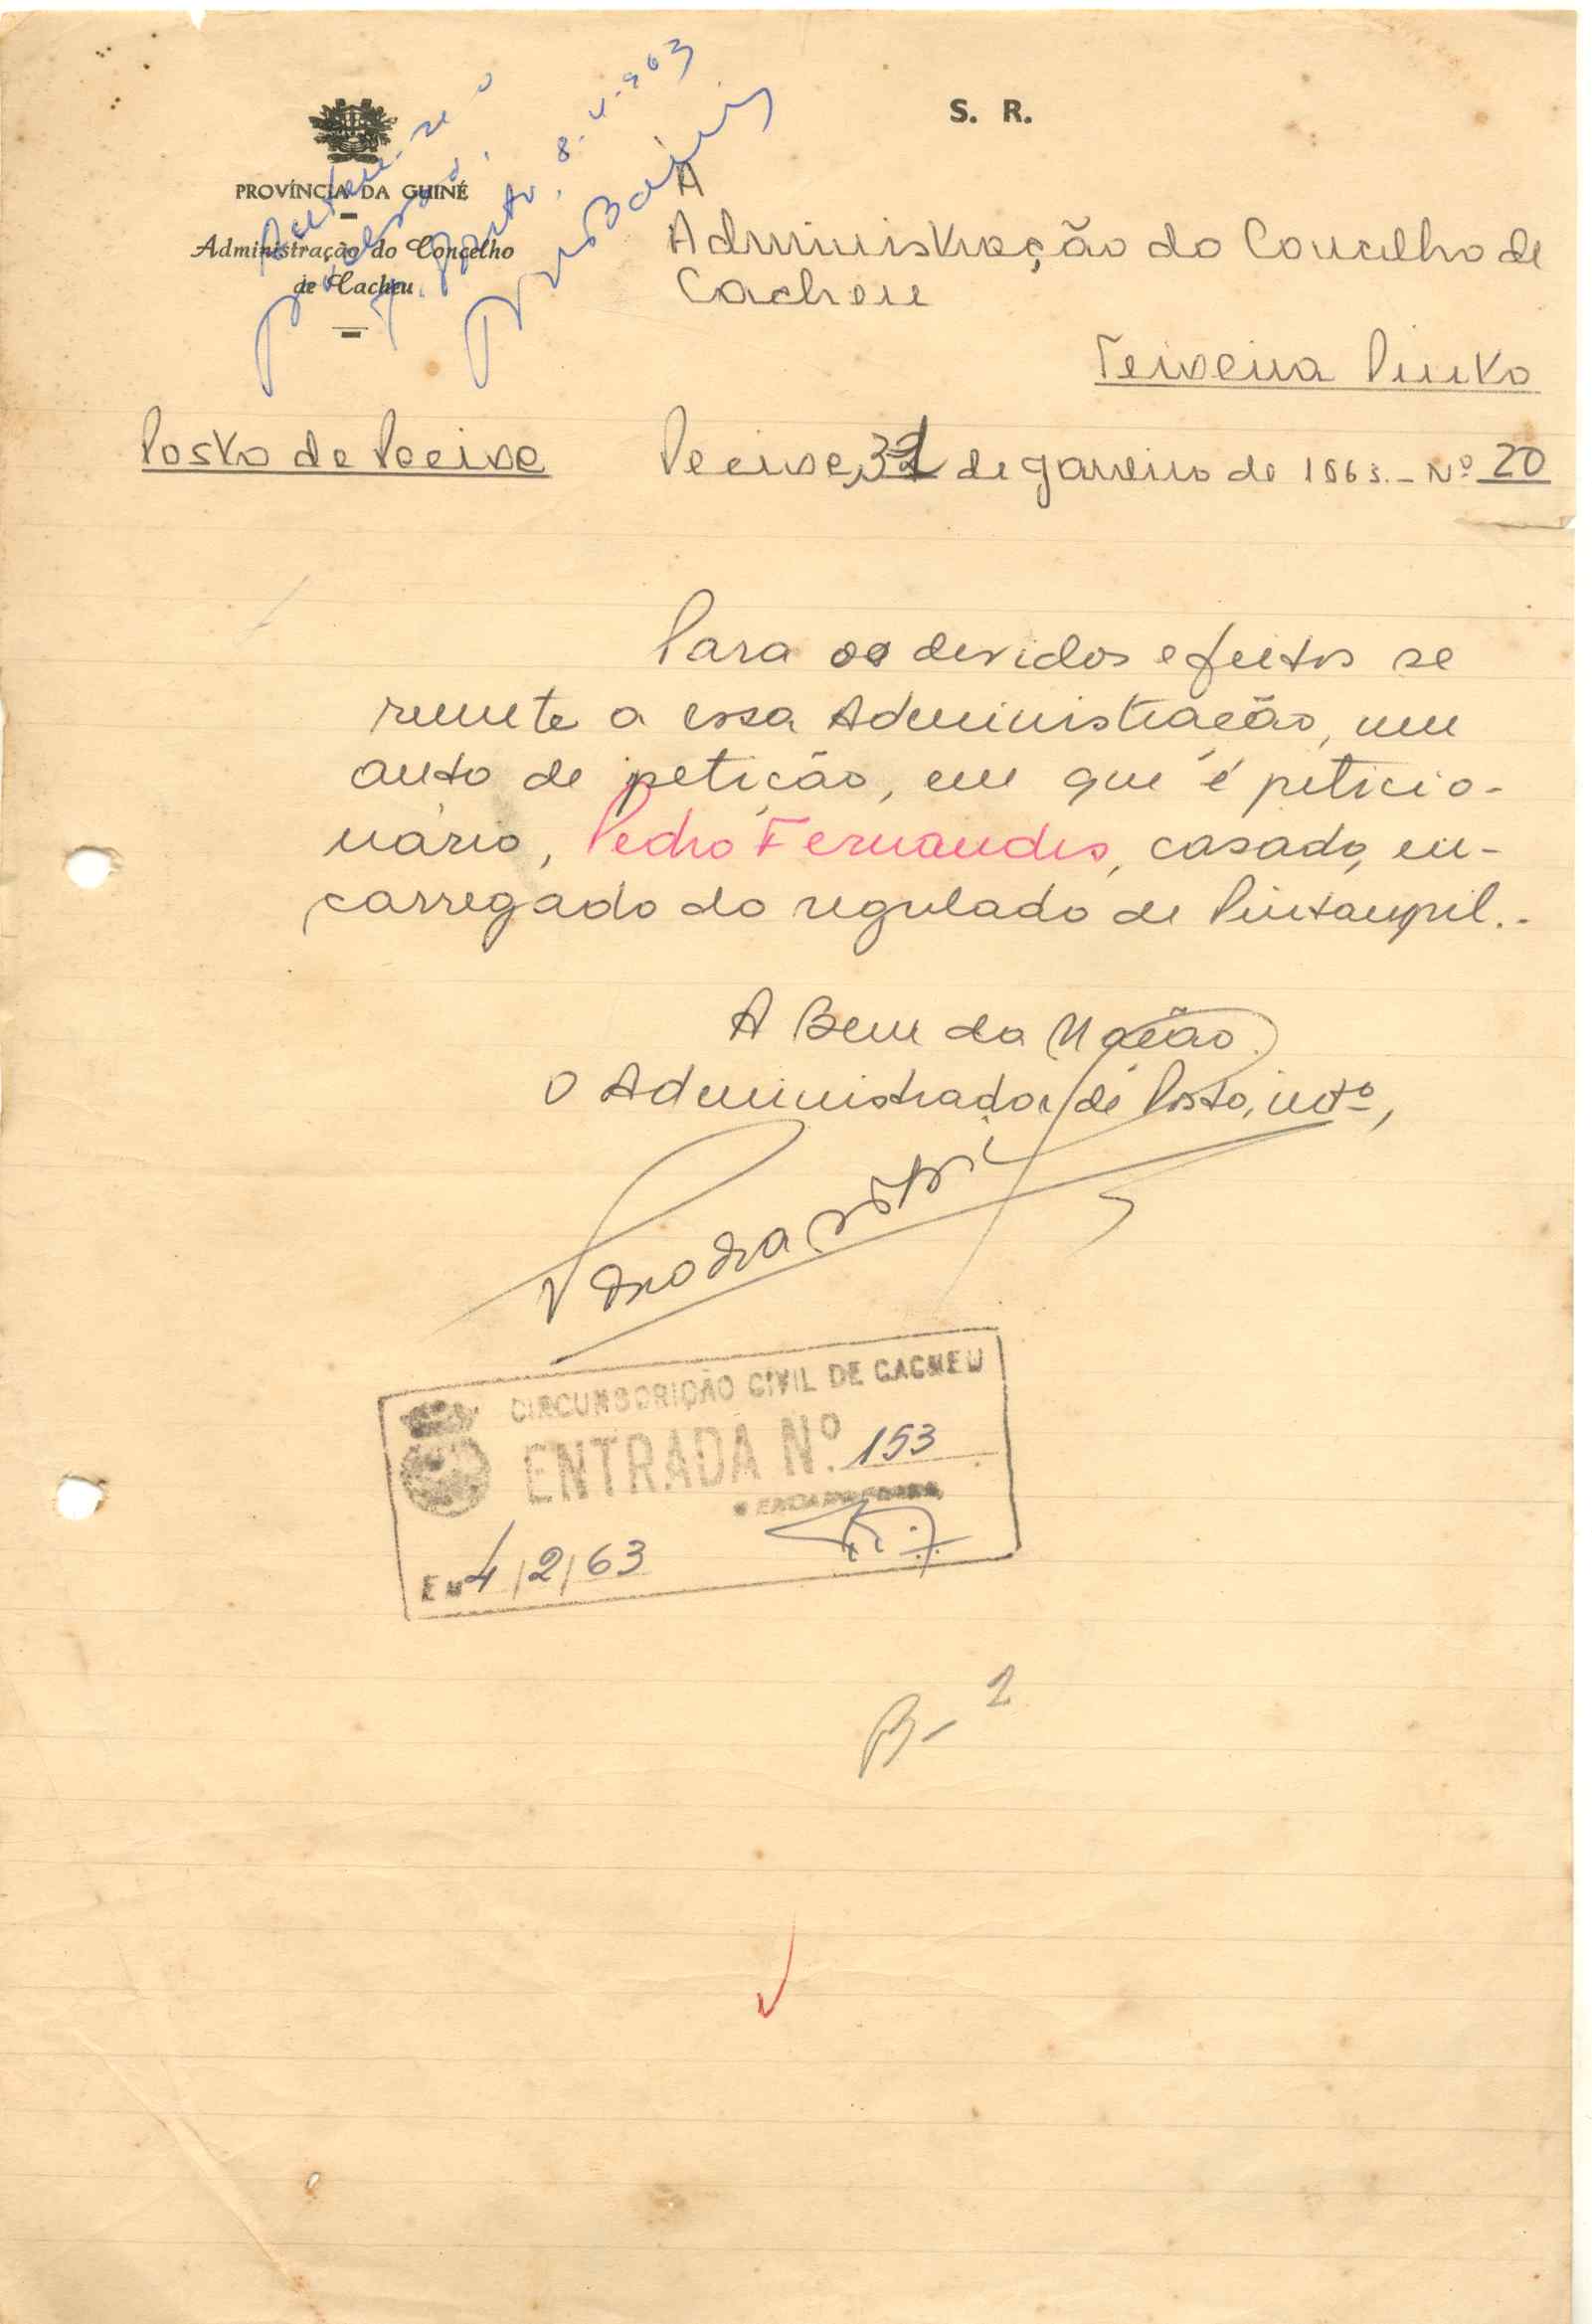 S. R.
PROVÍNCIA DA GUINÉ
Administração do Concelho
de Cacheu
T. Pinto, 8-2-963
À
Administração do Concelho de
Cacheu
Teixeira Pinto
Posto de Pecixe
Pecixe, 31 de janeiro de 1963.- Nº 20
Para os devidos efeitos se
remete a essa Administração, um
auto de petição, em que é peticio-
nário, Pedro Fernandes, casado, en-
carregado do regulado de Pintampil.-
A Bem da Nação.
O Administrador de Posto, intº,
CIRCUNSCRIÇÃO CIVIL DE CACHEU
ENTRADA Nº. 153
O ENCARREGADO,
Em 4/2/63
B-2